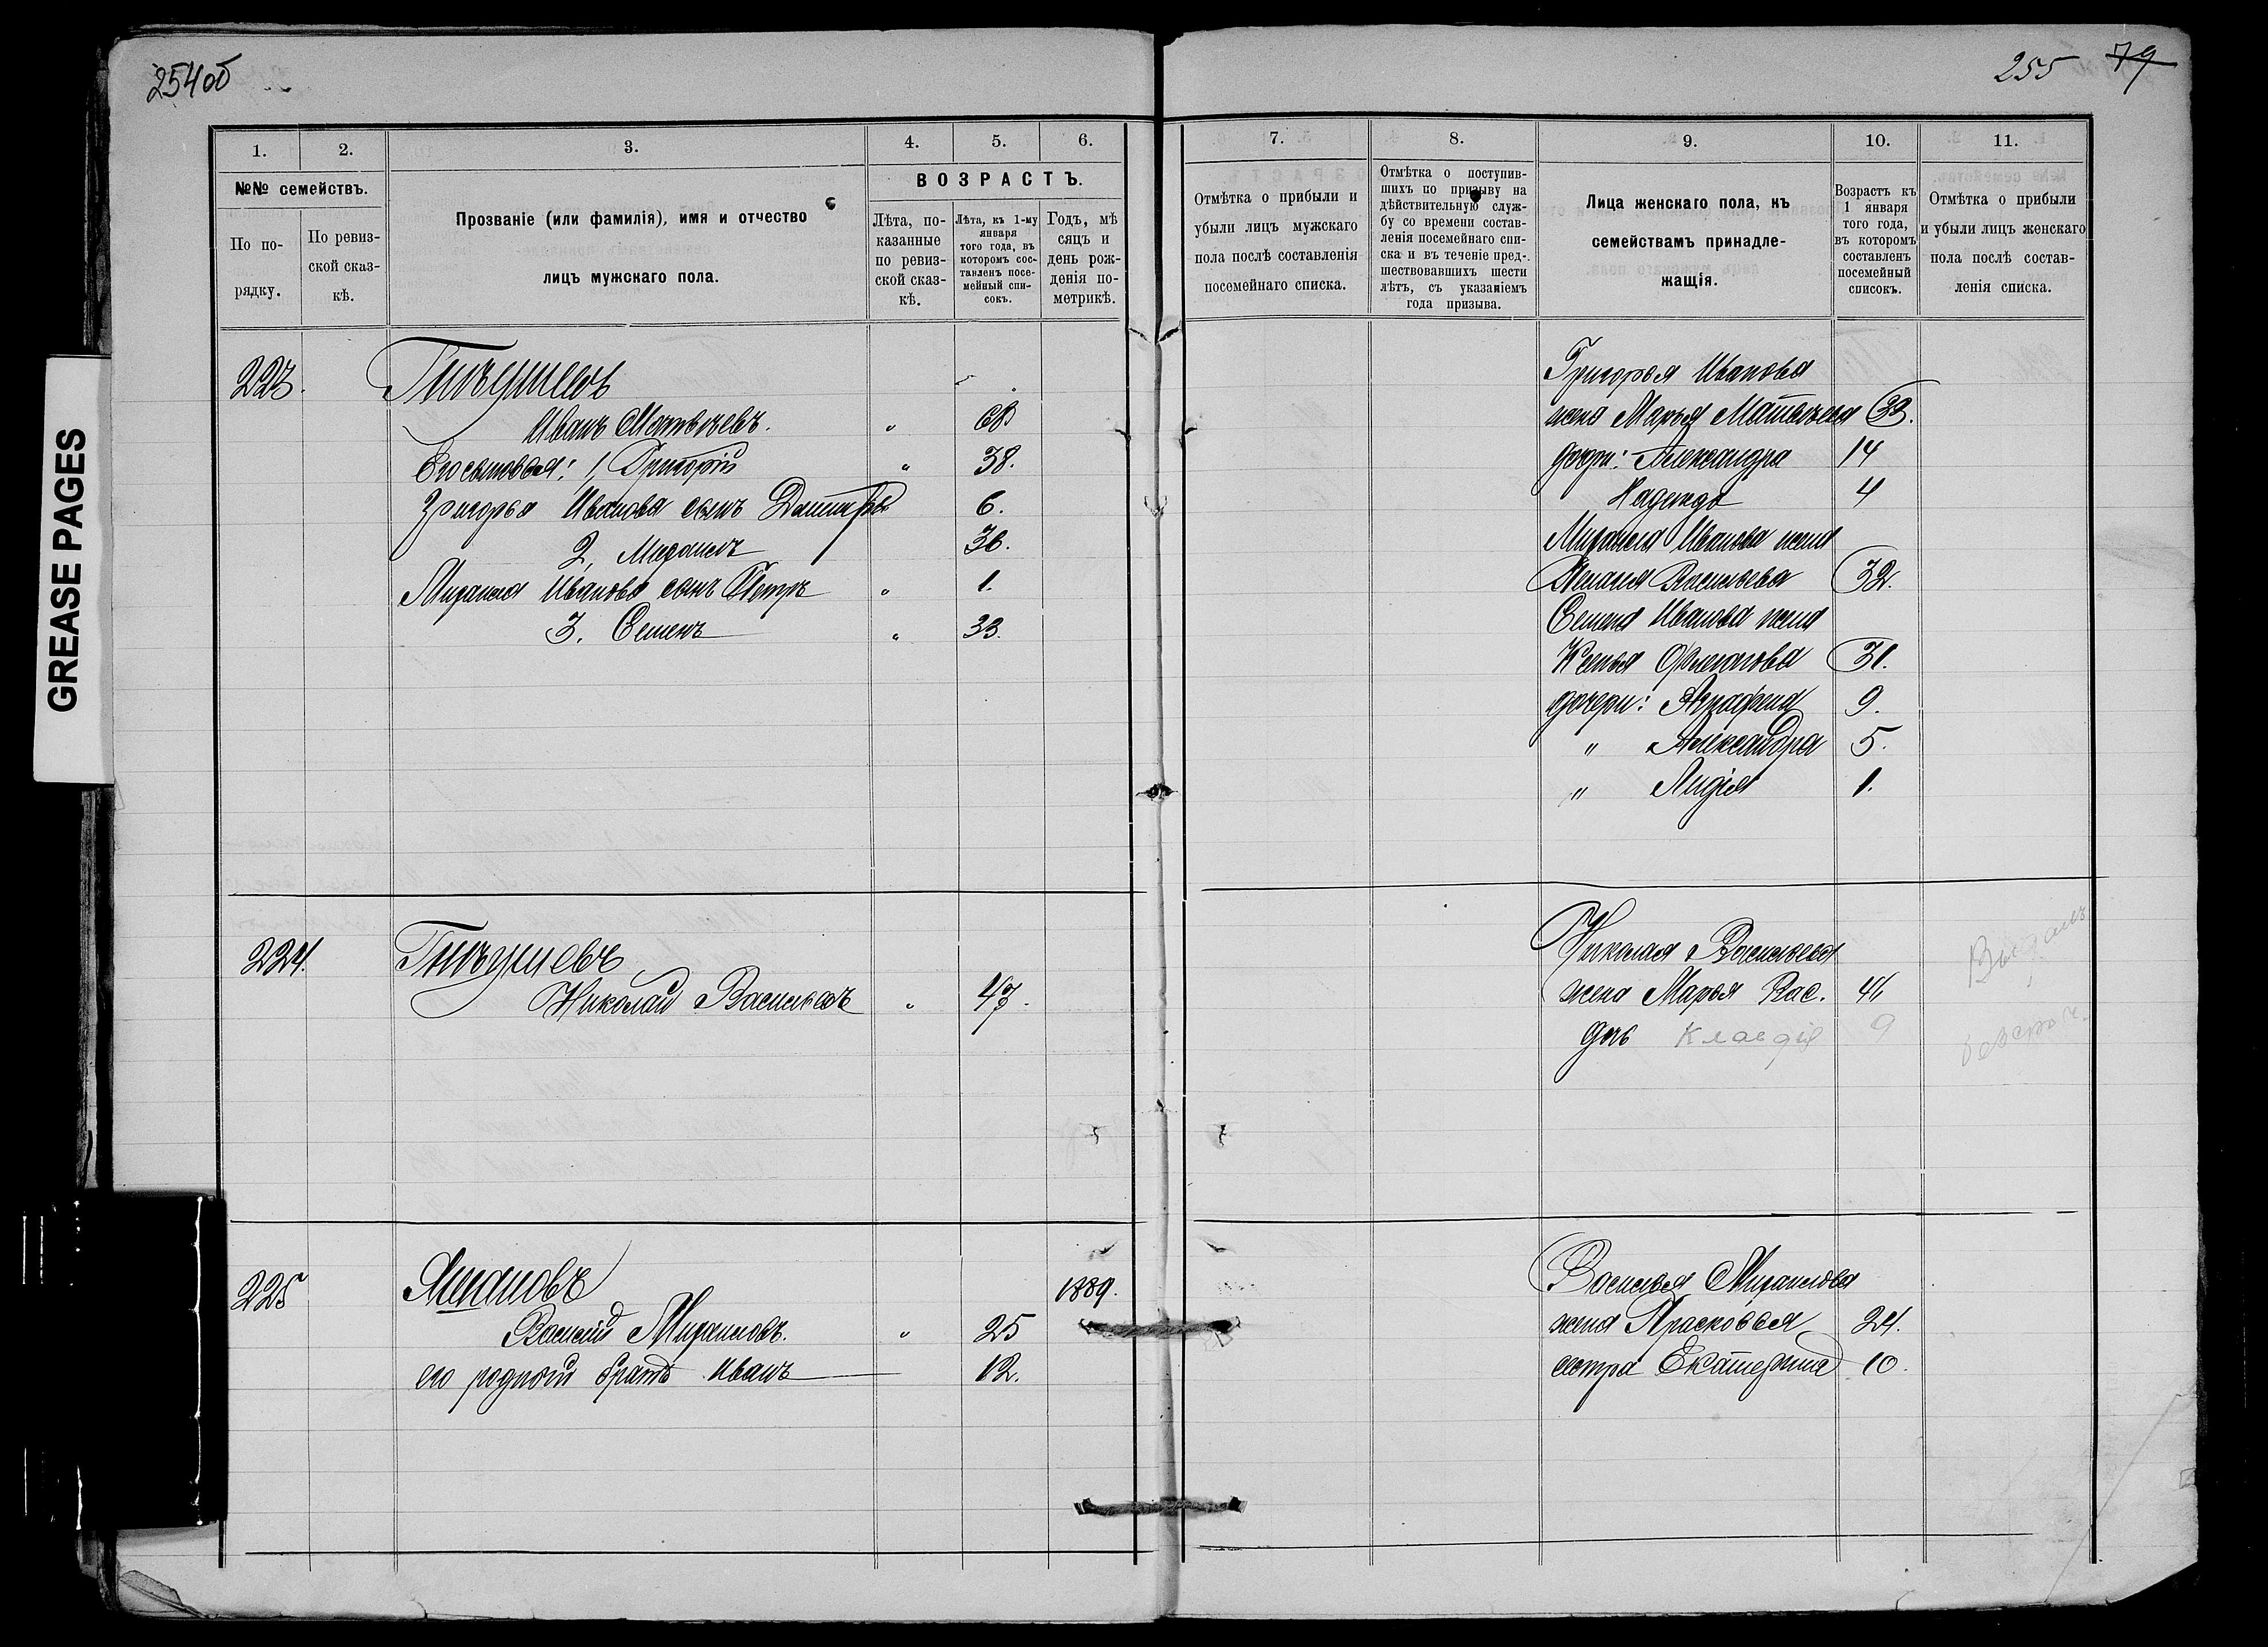 254об
255 79
GREASE PAGES
1. 2. 3. 4. 5. 6.
№№ семействъ.
По по-
рядку.
По ревиз-
ской сказ-
кѣ.
Прозваніе (или фамилія), имя и отчество
лицъ мужскаго пола.
ВОЗРАСТЪ.
Лѣта, по-
казанные
по ревиз-
ской сказ-
кѣ.
Лѣта, къ 1-му
января
того года, въ
которомъ сос-
тавленъ посе-
мейный спи-
сокъ.
Годъ, мѣ
сяцъ и
день рож-
денія по-
метрикѣ.
223.
Иванъ Матвѣевъ. " 68
Его сыновья: 1, Григорій " 38.
Григорья Иванова сынъ Дмитрій 6.
2, Михаилъ 36.
Михаила Иванова сынъ Петръ " 1.
3. Семенъ " 33.
224.
Николай Васильевъ " 47.
225 1889.
Василій Михаиловъ. " 25
его родной братъ Иванъ 12.
7. 8. 9. 10. 11.
Отмѣтка о прибыли и
убыли лицъ мужскаго
пола послѣ составленія
посемейнаго списка.
Отмѣтка о поступив-
шихъ по призыву на
дѣйствительную служ-
бу со времени состав-
ленія посемейнаго спи-
ска и въ теченіе пред-
шествовавшихъ шести
лѣтъ, съ указаніемъ
года призыва.
Лица женскаго пола, къ
семействамъ принадле-
жащія.
Возрастъ къ
1 января
того года,
въ которомъ
составленъ
посемейный
списокъ.
Отмѣтка о прибыли
и убыли лицъ женскаго
пола послѣ состав-
ленія списка.
Григорья Иванова
жена Марья Матвѣева 33.
дочери: Александра 14
Надежда 4
Михаила Иванова жена
Васильева 32.
Семена Иванова жена
Ксенья 31.
дочери: Аграфена 9.
" Александра 5.
" Лидія 1.
Николая Васильева
жена Марья Вас. 46
дочь Клавдія 9
Василья Михаилова
жена Прасковья 24.
сестра Екатерина 10.